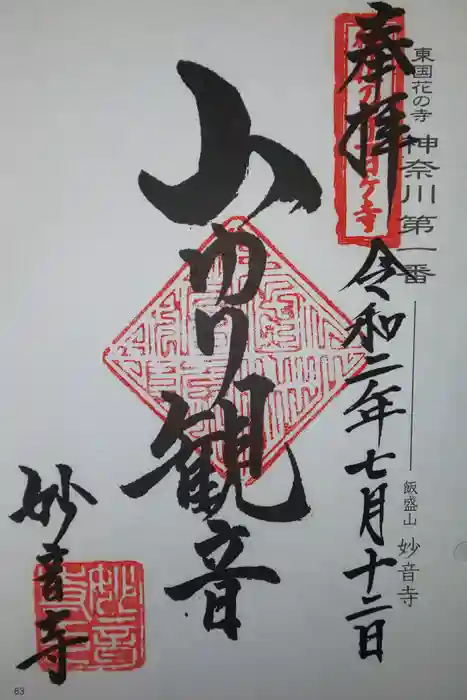 東国花の寺 神奈川 第一番
飯盛山 妙音寺
奉拝
令和二年七月十二日
山ゆり観音
妙音寺
63